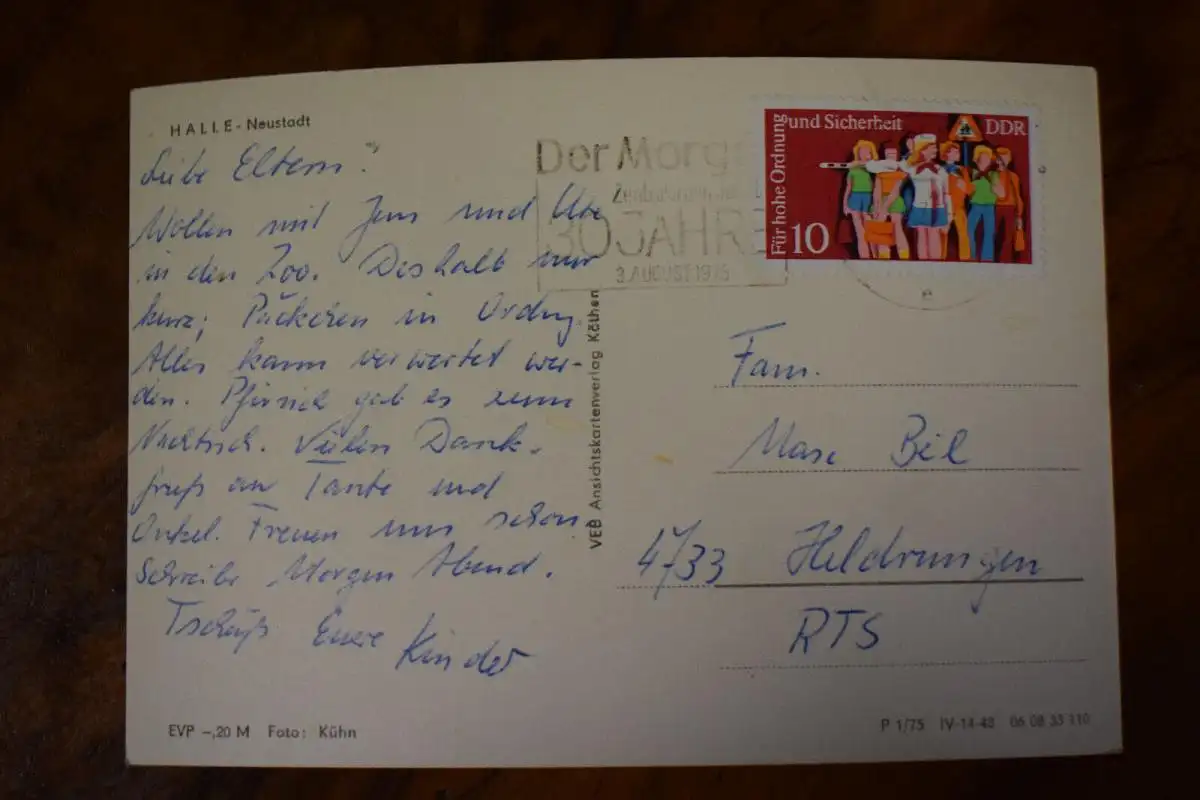 HALLE - Neustadt
Liebe Eltern!
Wollen mit Jens und Ute
in den Zoo. Deshalb nur
kurz; Päckchen in Ordng.
Alles kann verwertet wer-
den. Pfirsich gab es zum
Nachtisch. Vielen Dank.
Gruß an Tante und
Onkel. Freuen uns schon
Schreibe Morgen Abend.
Tschüß Eure Kinder
EVP -,20 M Foto: Kühn
VEB Ansichtskartenverlag Köthen
Der Morg
30 JAHRE
3. AUGUST 1975
Für hohe Ordnung
und Sicherheit
DDR
10
e
Fam.
Max Beil
4733 Heldrungen
RTS
P 1/75 IV-14-48 06 08 33 110